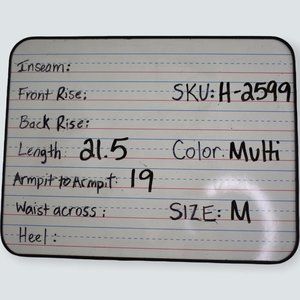 Inseam:
Front Rise: SKU: H-2599
Back Rise:
Length: 21.5 Color: Multi
Armpit to Armpit: 19
Waist across: SIZE: M
Heel: